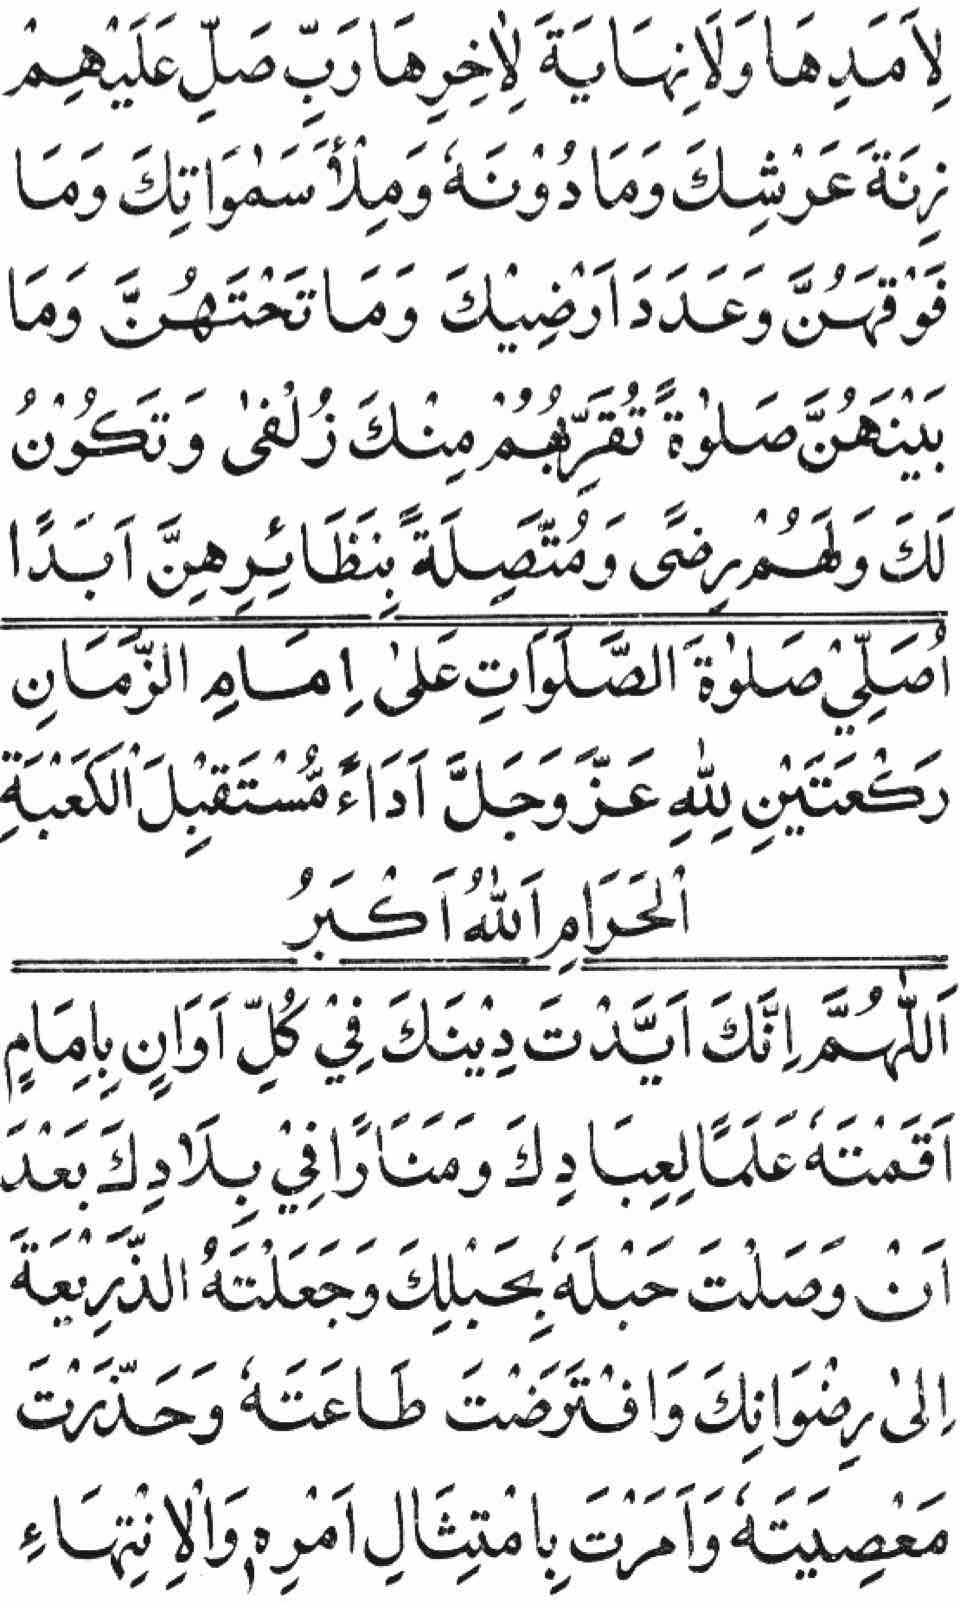 لِاَمَدِهَا وَلَا نِهَايَةَ لِاٰخِرِهَا رَبِّ صَلِّ عَلَيْهِمْ
زِنَةَ عَرْشِكَ وَمَا دُوْنَهٗ وَمِلْأَ سَمٰوَاتِكَ وَمَا
فَوْقَهُنَّ وَعَدَدَ اَرْضِيْكَ وَمَا تَحْتَهُنَّ وَمَا
بَيْنَهُنَّ صَلٰوةً تُقَرِّبُهُمْ مِنْكَ زُلْفٰى وَتَكُوْنُ
لَكَ وَلَهُمْ رِضًى وَمُتَّصِلَةً بِنَظَائِرِهِنَّ اَبَدًا
اُصَلِّيْ صَلٰوةَ الصَّلَوَاتِ عَلٰى اِمَامِ الزَّمَانِ
رَكْعَتَيْنِ لِلّٰهِ عَزَّ وَجَلَّ اَدَاءً مُّسْتَقْبِلَ الْكَعْبَةِ
الْحَرَامِ اَللّٰهُ اَكْبَرُ
اَللّٰهُمَّ اِنَّكَ اَيَّدْتَ دِيْنَكَ فِيْ كُلِّ اَوَانٍ بِاِمَامٍ
اَقَمْتَهٗ عَلَمًا لِعِبَادِكَ وَمَنَارًا فِيْ بِلَادِكَ بَعْدَ
اَنْ وَصَلْتَ حَبْلَهٗ بِحَبْلِكَ وَجَعَلْتَهُ الذَّرِيْعَةَ
اِلٰى رِضْوَانِكَ وَافْتَرَضْتَ طَاعَتَهٗ وَحَذَّرْتَ
مَعْصِيَتَهٗ وَاَمَرْتَ بِامْتِثَالِ اَمْرِهٖ وَالْاِنْتِهَاءِ